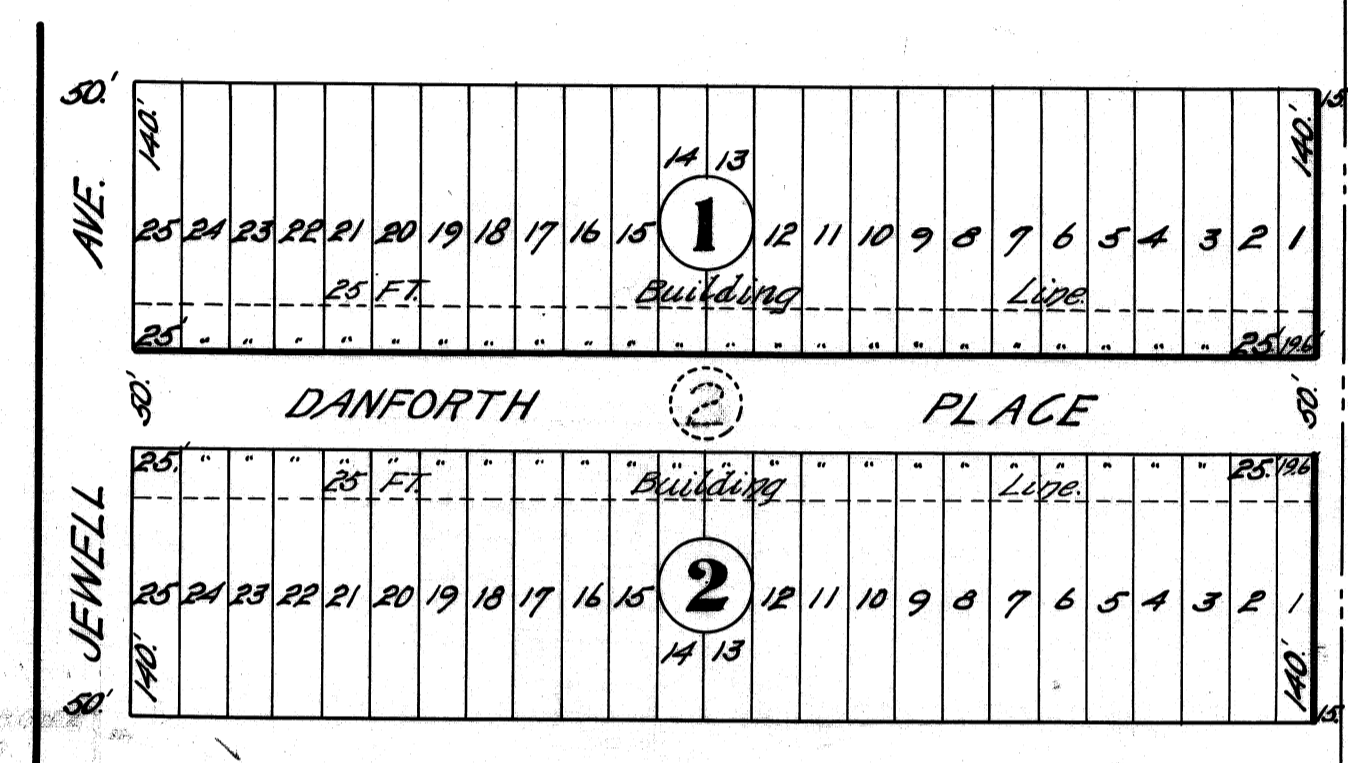 50.' 15.
140.' 140.'
14 13
AVE.
25 24 23 22 21 20 19 18 17 16 15 1 12 11 10 9 8 7 6 5 4 3 2 1
25 FT. Building Line.
25' " " " " " " " " " " " " " " " " " " " " " " 25.' 19.6
50.' DANFORTH 2 PLACE 50.'
25.' " " " " " " " " " " " " " " " " " " " " " " 25. 19.6
25 FT. Building Line.
JEWELL
25 24 23 22 21 20 19 18 17 16 15 2 12 11 10 9 8 7 6 5 4 3 2 1
14 13
140.' 140.'
50.' 15.